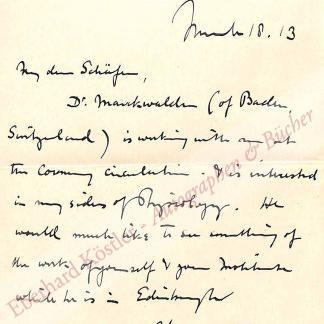 March 18. 13
My dear Schäfer,
Dr. Markwalder (of Baden,
Switzerland) is working with me at
the Coronary circulation. He is interested
in my sides of Physiology. He
would much like to see something of
the work of yourself & your Institute
while he is in Edinburgh
Eberhard Köstler - Autographen & Bücher